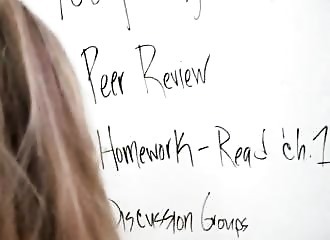 Peer Review
Homework - Read Ch. 1
Discussion Groups